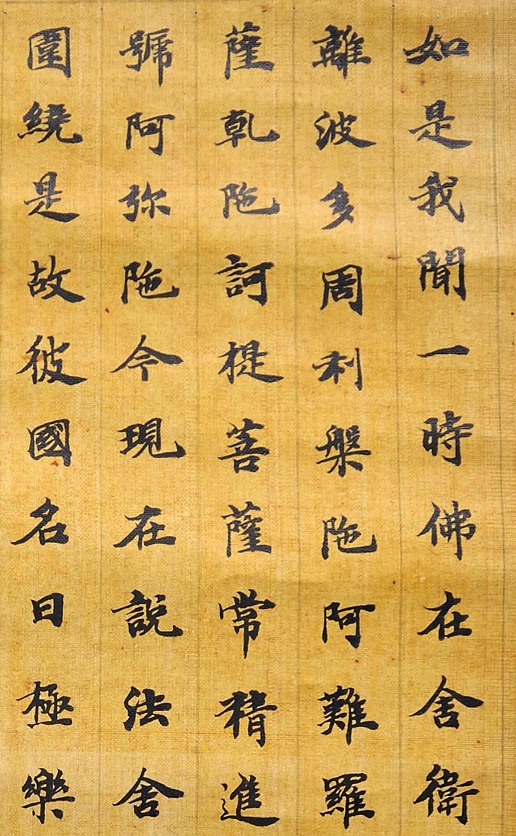 如是我聞一時佛在舍衛
離波多周利槃陁阿難羅
薩乹陁訶提菩薩常精進
號阿弥陁今現在説法舍
圍繞是故彼國名曰極樂